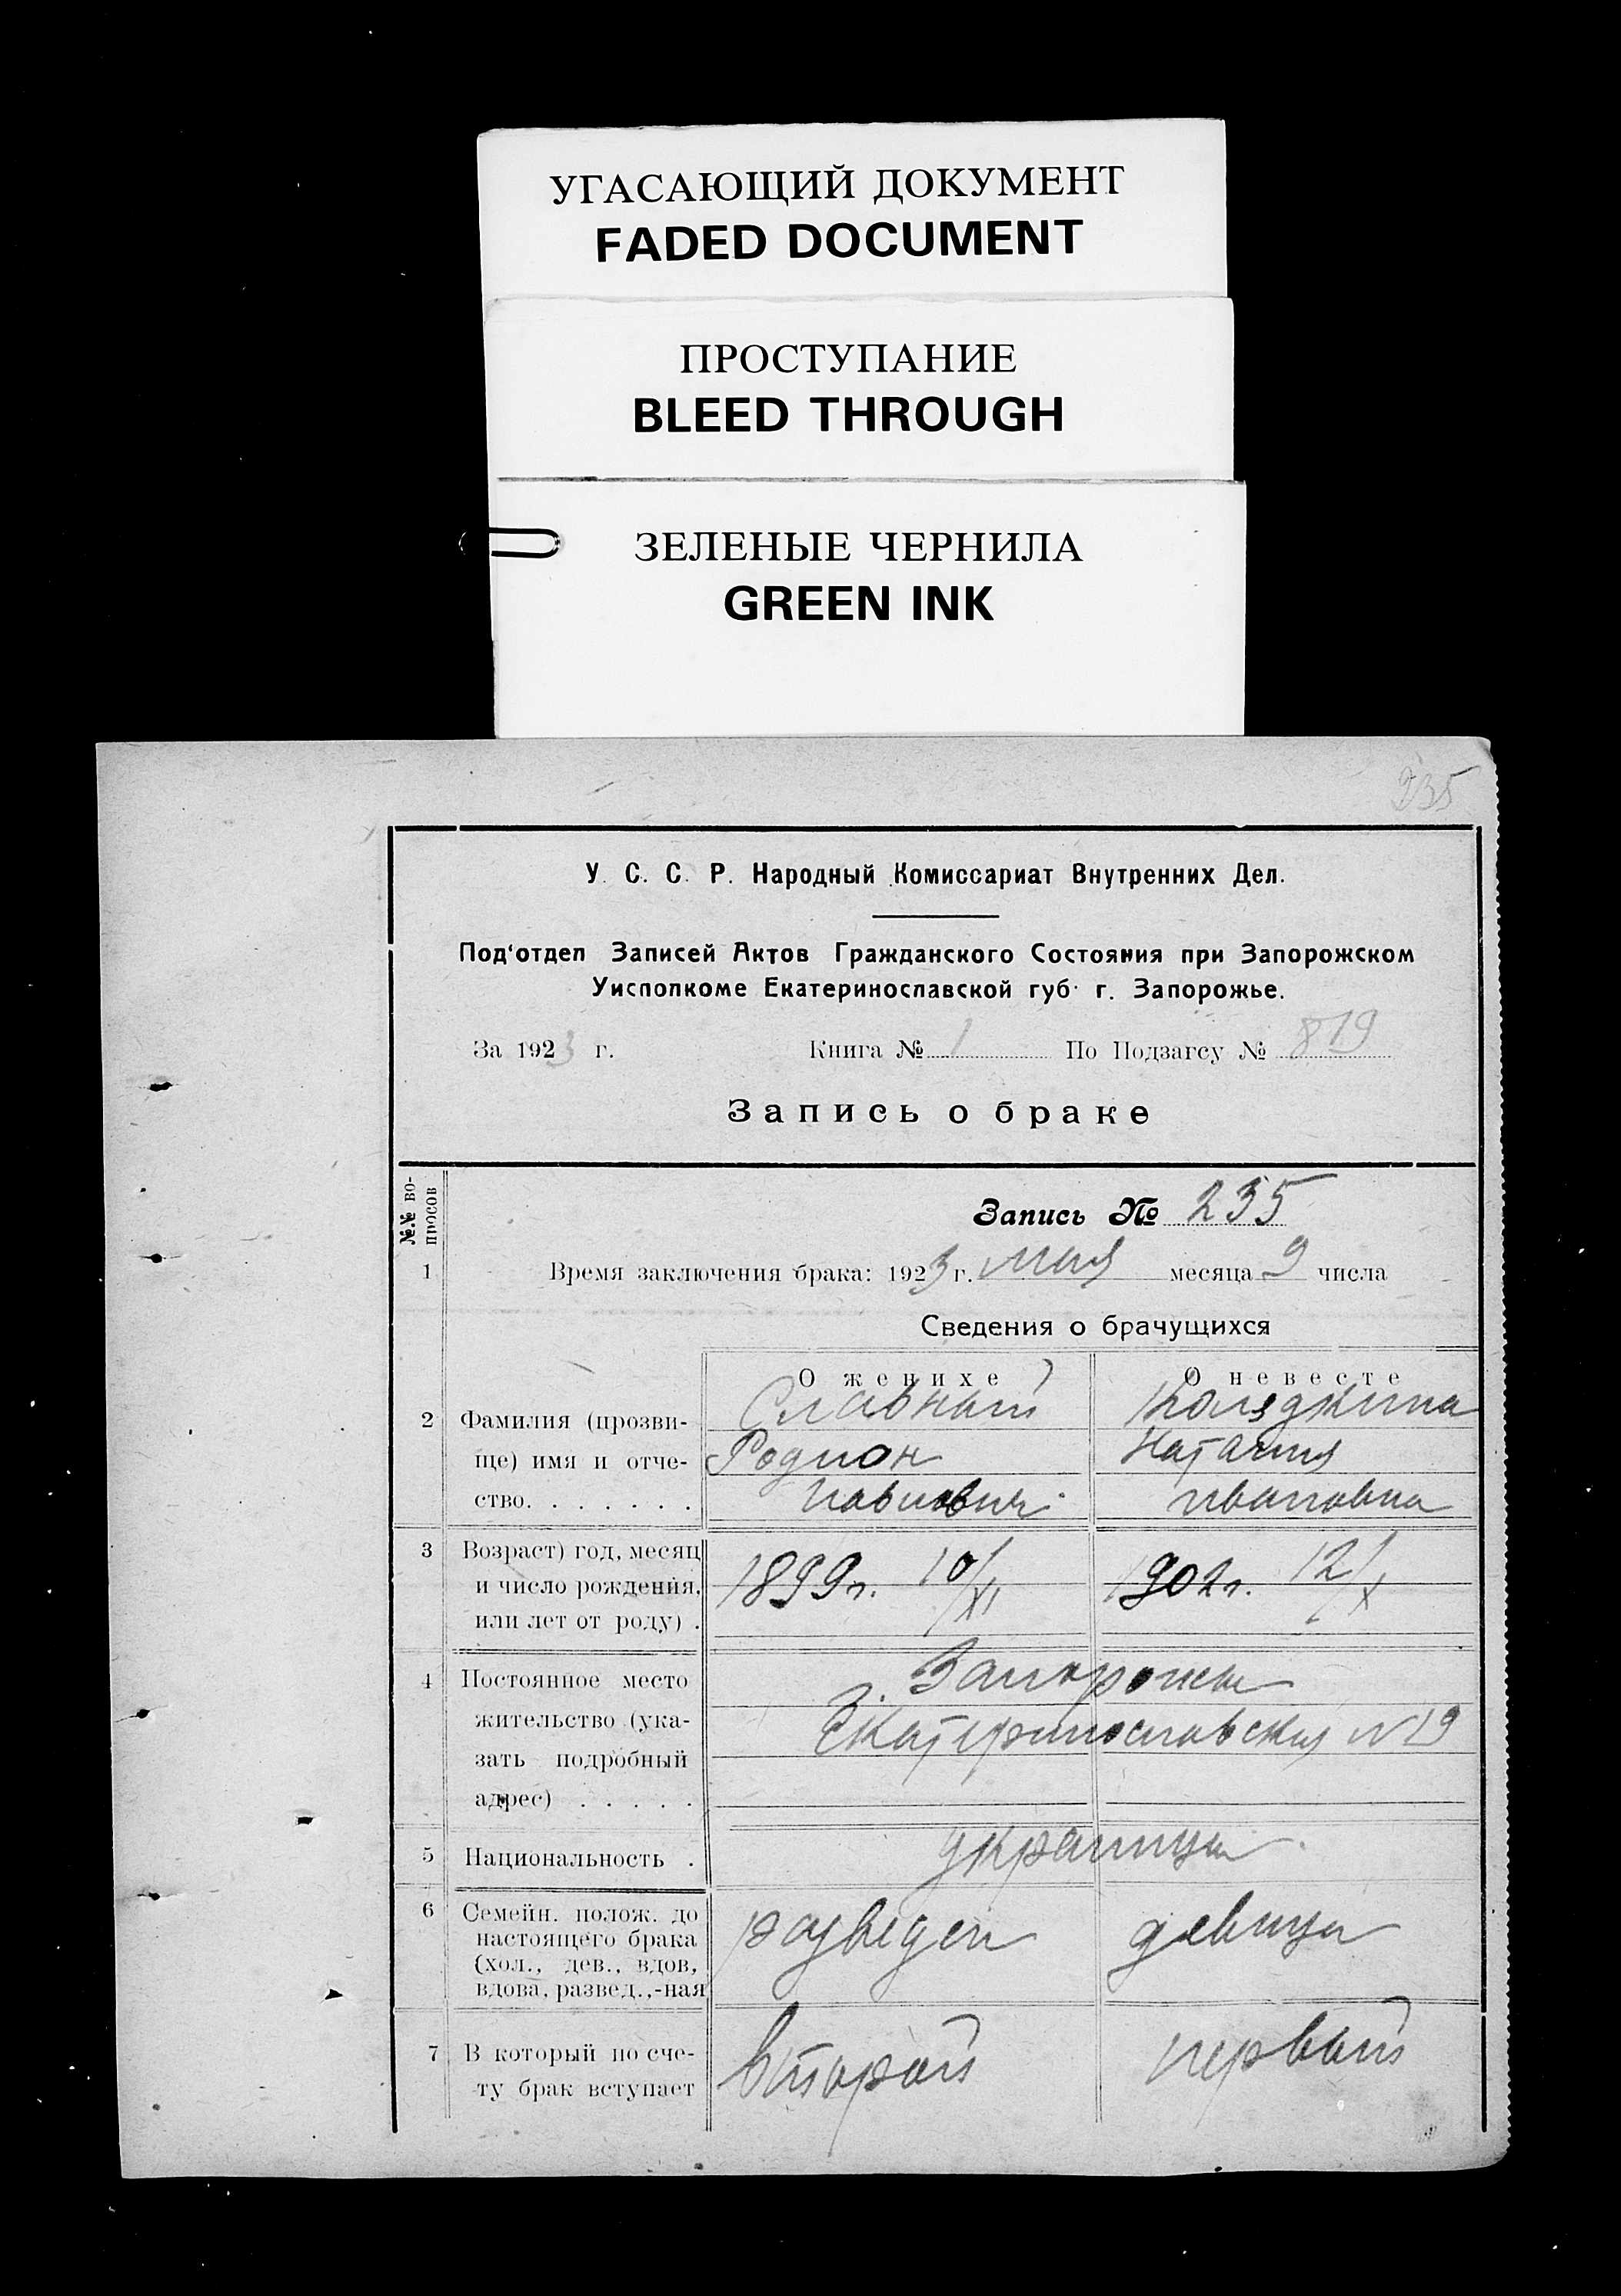 УГАСАЮЩИЙ ДОКУМЕНТ
FADED DOCUMENT
ПРОСТУПАНИЕ
BLEED THROUGH
ЗЕЛЕНЫЕ ЧЕРНИЛА
GREEN INK
235
У. С. С. Р. Народный Комиссариат Внутренних Дел.
Под‘отдел Записей Актов Гражданского Состояния при Запорожском
Уисполкоме Екатеринославской губ. г. Запорожье.
За 1923 г. Книга № 1 По Подзагсу № 819
Запись о браке
№№ во-
просов
Запись № 235
1 Время заключения брака: 1923 г. мая месяца 9 числа
Сведения о брачущихся
О женихе О невесте
2 Фамилия (прозви- Славный
ще) имя и отче- Родион Наталия
ство. . . . . . . Павлович Ивановна
3 Возраст) год, месяц
и число рождения, 1899 г. 10/XI 1902 г. 12/X
или лет от роду) .
4 Постоянное место г. Запорожье
жительство (ука- Екатеринославская № 19
зать подробный
адрес) . . . . .
5 Национальность . украинцы
6 Семейн. полож. до
настоящего брака разведен девица
(хол., дев., вдов,
вдова, развед.,-ная
7 В который по сче- второй первый
ту брак вступает